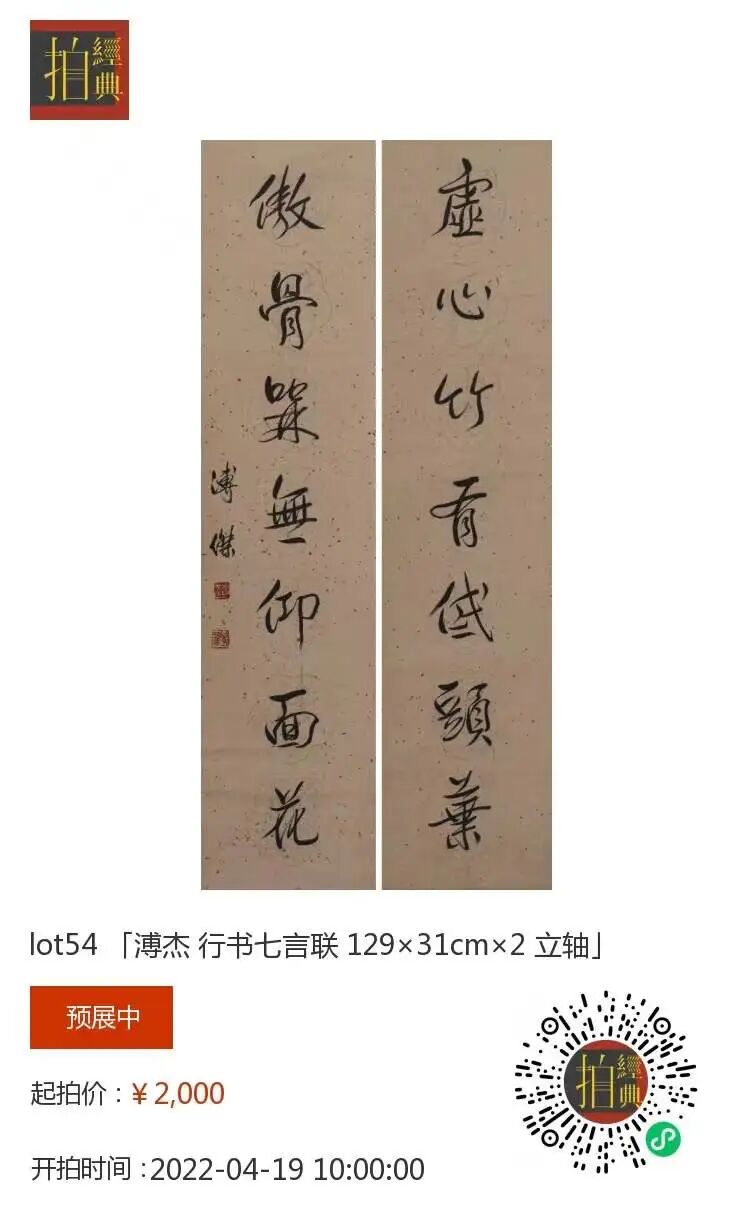 拍經典
虛心竹有低頭葉
傲骨槑無仰面花
溥傑
lot54 「溥杰 行书七言联 129×31cm×2 立轴」
预展中
起拍价：¥2,000
开拍时间：2022-04-19 10:00:00
拍經典